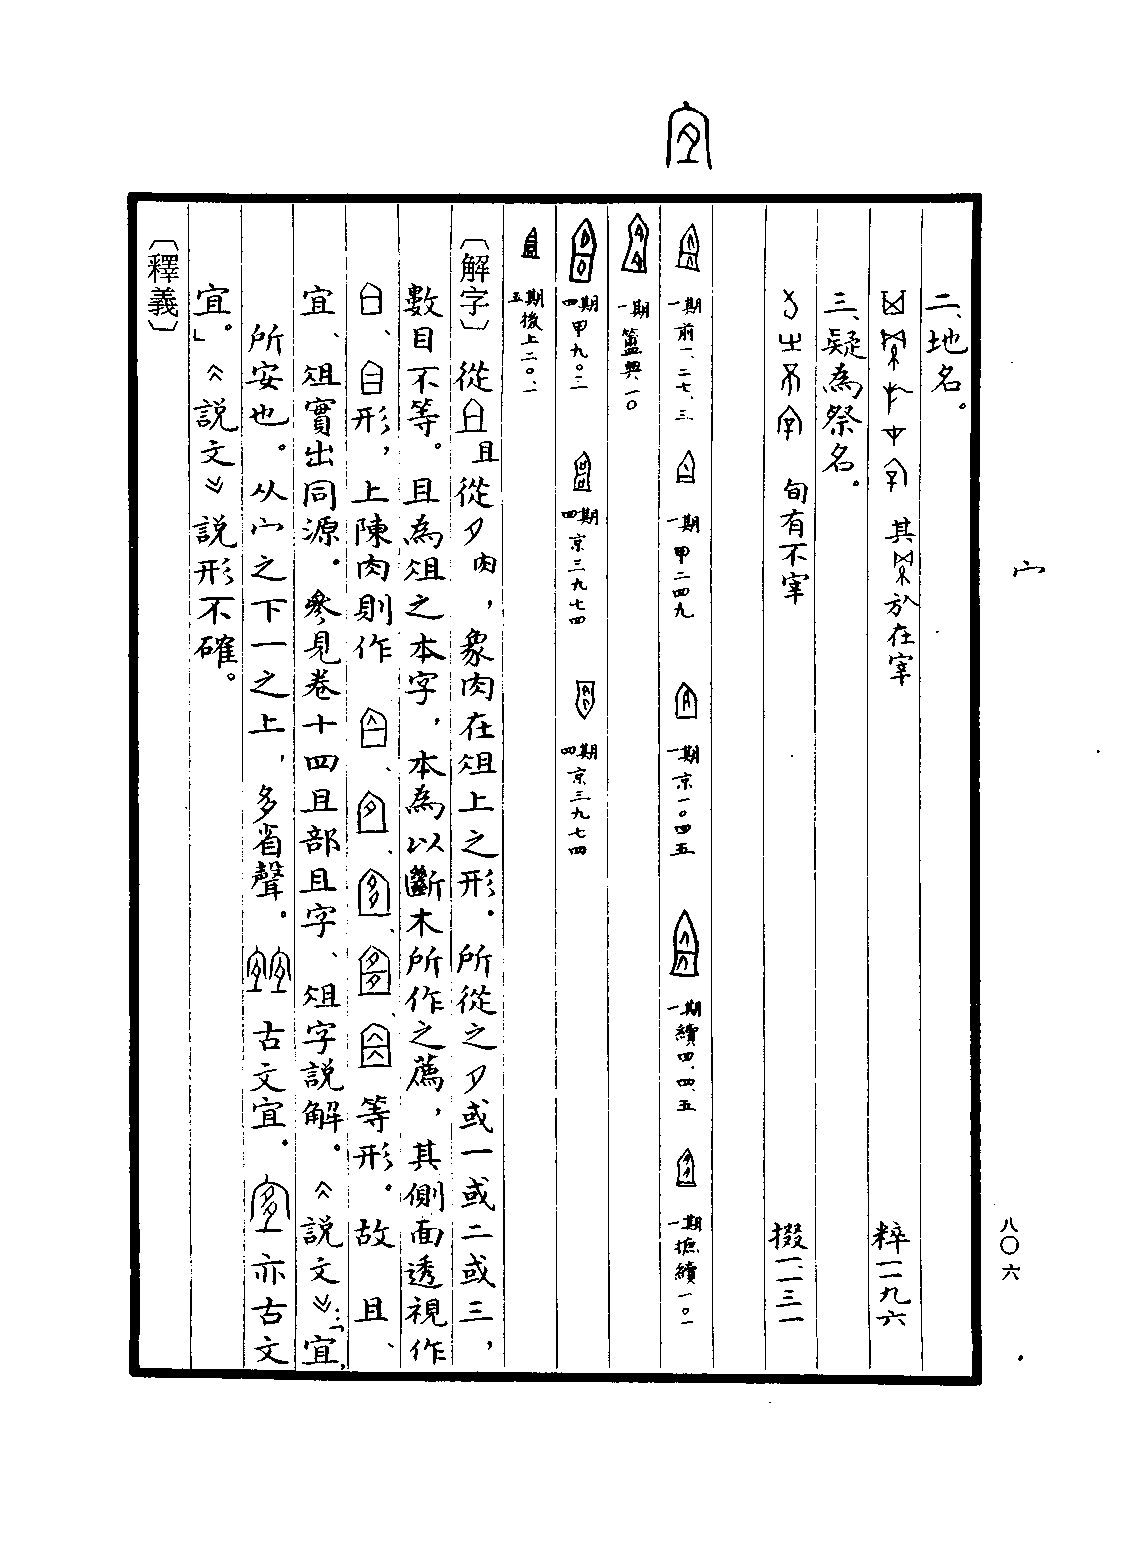 宀
八〇六
二、地名。
其於在宰 粹一一九六
三、疑為祭名。
旬有不宰 掇一、一三一
一期前一、二七、三
一期甲二四九
一期京一〇四五
一期續四、四、五
一期摭續一〇一
一期簠典一〇
四期甲九〇二
四期京三九七四
四期京三九七四
五期後上二〇、一
〔解字〕從且從肉，象肉在俎上之形。所從之或一或二或三，
數目不等。且為俎之本字，本為以斷木所作之薦，其側面透視作
形，上陳肉則作、、、、等形。故且、
宜、俎實出同源。參見卷十四且部且字、俎字說解。《說文》：「宜，
所安也。从宀之下一之上，多省聲。古文宜。亦古文
宜。」《說文》說形不確。
〔釋義〕